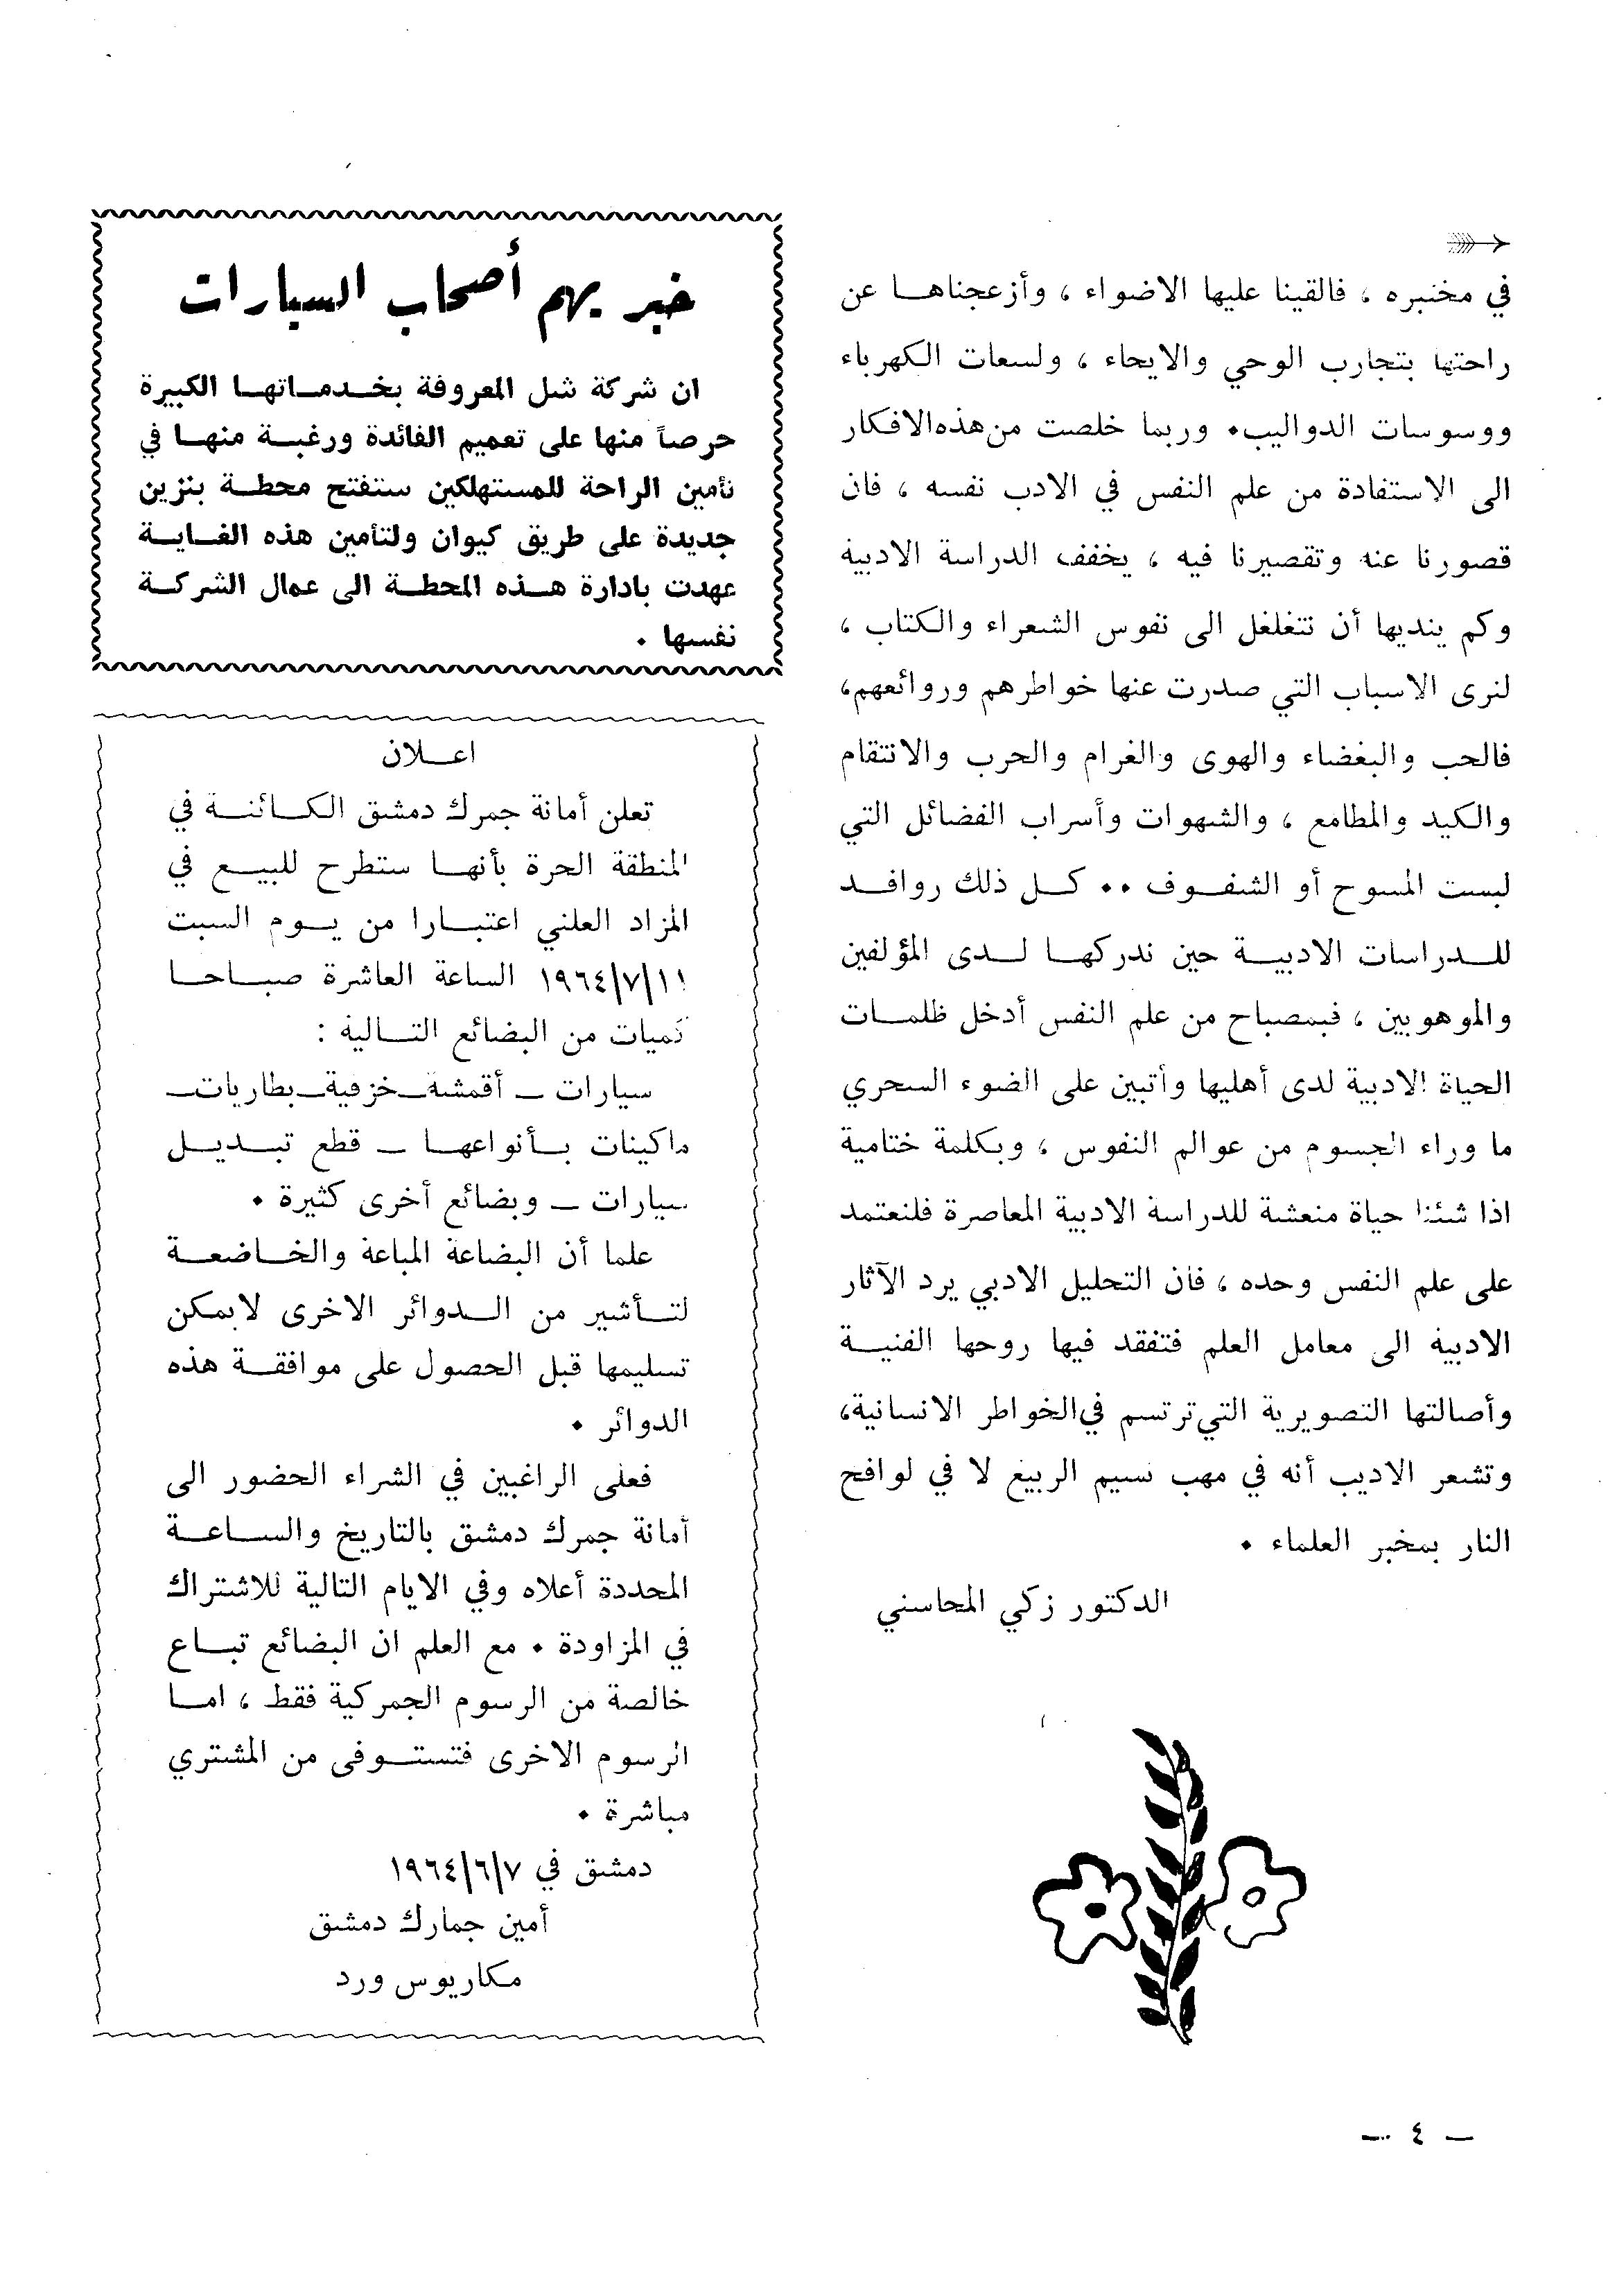 في مختبره ، فالقينا عليها الاضواء ، وأزعجناها عن
راحتها بتجارب الوحي والايحاء ، ولسعات الكهرباء
ووسوسات الدواليب٠ وربما خلصت من هذه الافكار
الى الاستفادة من علم النفس في الادب نفسه ، فان
قصورنا عنه وتقصيرنا فيه ، يخفف الدراسة الادبية
وكم ينديها أن تتغلغل الى نفوس الشعراء والكتاب ،
لنرى الاسباب التي صدرت عنها خواطرهم وروائعهم،
فالحب والبغضاء والهوى والغرام والحرب والانتقام
والكيد والمطامع ، والشهوات وأسراب الفضائل التي
لبست المسوح أو الشفوف ٠٠ كل ذلك روافد
للدراسات الادبية حين ندركها لدى المؤلفين
والموهوبين ، فبمصباح من علم النفس أدخل ظلمات
الحياة الادبية لدى أهليها وأتبين على الضوء السحري
ما وراء الجسوم من عوالم النفوس ، وبكلمة ختامية
اذا شئنا حياة منعشة للدراسة الادبية المعاصرة فلنعتمد
على علم النفس وحده ، فان التحليل الادبي يرد الآثار
الادبية الى معامل العلم فتفقد فيها روحها الفنية
وأصالتها التصويرية التي ترتسم في الخواطر الانسانية،
وتشعر الاديب أنه في مهب نسيم الربيع لا في لوافح
النار بمخبر العلماء ٠
الدكتور زكي المحاسني
خبر يهم أصحاب السيارات
ان شركة شل المعروفة بخدماتها الكبيرة
حرصاً منها على تعميم الفائدة ورغبة منها في
تأمين الراحة للمستهلكين ستفتح محطة بنزين
جديدة على طريق كيوان ولتأمين هذه الغاية
عهدت بادارة هذه المحطة الى عمال الشركة
نفسها ٠
اعلان
تعلن أمانة جمرك دمشق الكائنة في
المنطقة الحرة بأنها ستطرح للبيع في
المزاد العلني اعتبارا من يوم السبت
١١/٧/١٩٦٤ الساعة العاشرة صباحا
كميات من البضائع التالية :
سيارات – أقمشة – خزفية – بطاريات –
ماكينات بأنواعها – قطع تبديل
سيارات – وبضائع أخرى كثيرة ٠
علما أن البضاعة المباعة والخاضعة
لتأشير من الدوائر الاخرى لايمكن
تسليمها قبل الحصول على موافقة هذه
الدوائر ٠
فعلى الراغبين في الشراء الحضور الى
أمانة جمرك دمشق بالتاريخ والساعة
المحددة أعلاه وفي الايام التالية للاشتراك
في المزاودة ٠ مع العلم ان البضائع تباع
خالصة من الرسوم الجمركية فقط ، اما
الرسوم الاخرى فتستوفى من المشتري
مباشرة ٠
دمشق في ٧/٦/١٩٦٤
أمين جمارك دمشق
مكاريوس ورد
– ٤ –